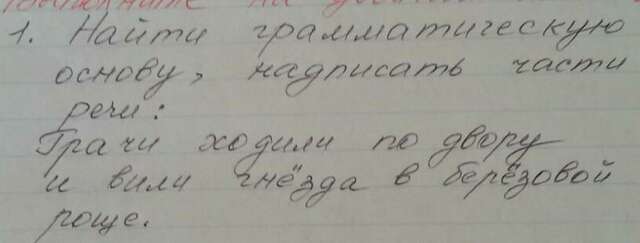 1. Найти грамматическую
основу, надписать части
речи:
Грачи ходили по двору
и вили гнёзда в берёзовой
роще.